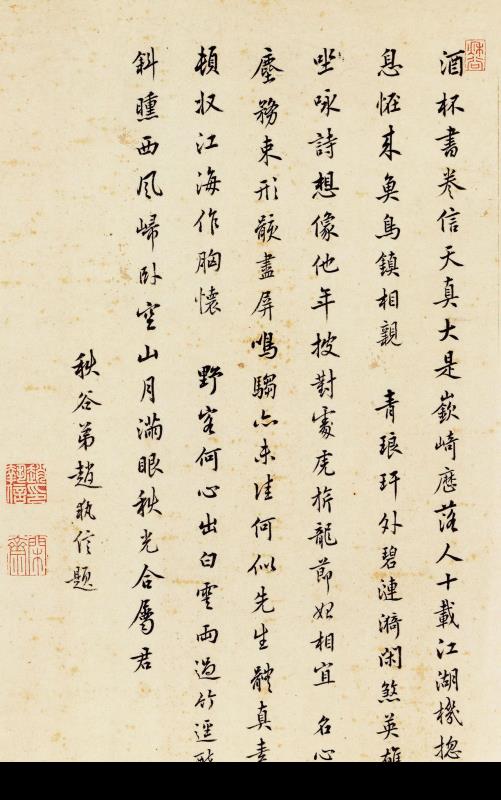 酒杯書卷信天真大是嶔崎歷落人十載江湖機
息恠來魚鳥鎮相親 青琅玕外碧漣漪閑煞英雄
坐詠詩想像他年披對處虎旂龍節想相宜 名心
塵務束形骸盡屏鳴騶亦未佳何似先生體真
頓收江海作胸懷 野客何心出白雲雨過竹逕
斜曛西風歸卧空山月滿眼秋光合屬君
秋谷弟趙執信題